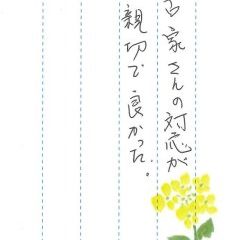 家さんの対応が
親切で良かった。